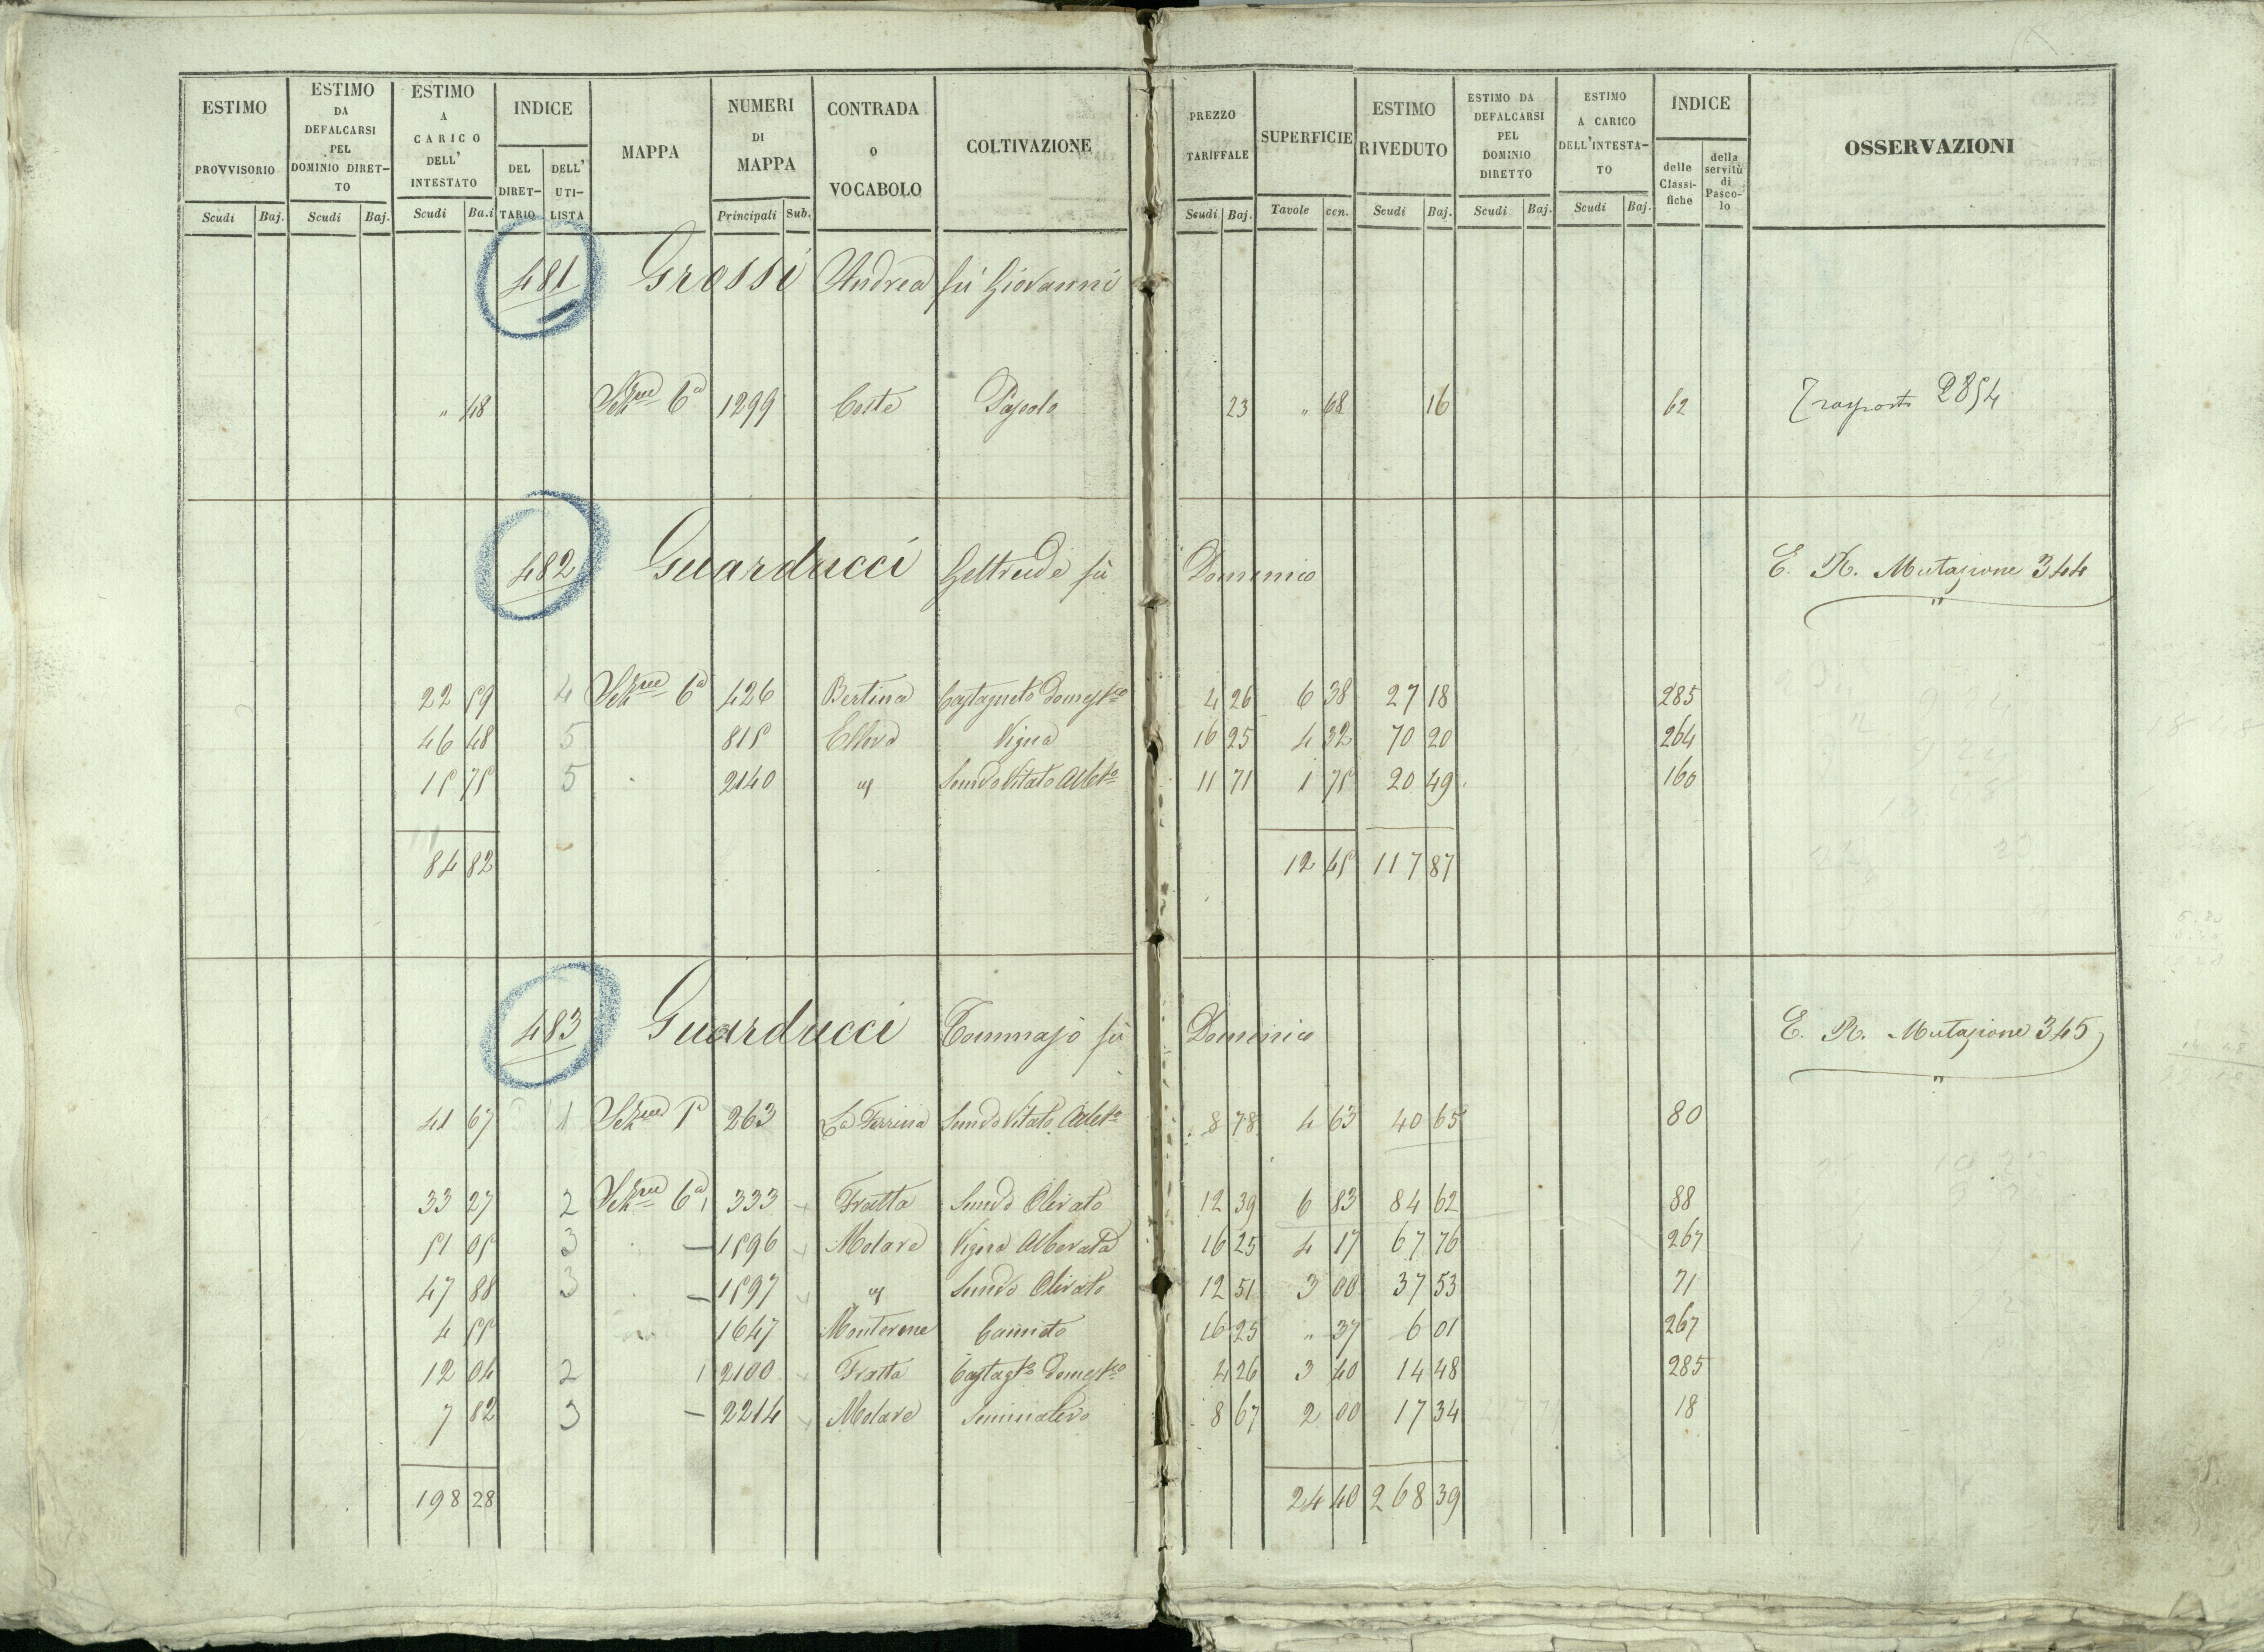 ESTIMO PROVVISORIO | ESTIMO DA DEFALCARSI PEL DOMINIO DIRETTO | ESTIMO A CARICO DELL' INTESTATO | INDICE | MAPPA | NUMERI DI MAPPA | CONTRADA O VOCABOLO | COLTIVAZIONE | PREZZO TARIFFALE | SUPERFICIE | ESTIMO RIVEDUTO | ESTIMO DA DEFALCARSI PEL DOMINIO DIRETTO | ESTIMO A CARICO DELL'INTESTATO | INDICE | OSSERVAZIONI
DEL DIRETTARIO | DELL' UTILISTA | delle Classifiche | della servitù di Pascolo
Scudi | Baj. | Scudi | Baj. | Scudi | Ba.i | Principali | Sub. | Scudi | Baj. | Tavole | cen. | Scudi | Baj. | Scudi | Baj. | Scudi | Baj.
481 Grossi Andrea fù Giovanni
" 48 | 6a | 1299 | Coste | Pascolo | 23 | " 68 | 16 | 62 | Trasporto 2854
482 Guarducci Geltrude fù Domenico | E. R. Mutazione 344
22 59 | 4 | 6a | 426 | Bertina | Castagneto Domest.co | 4 26 | 6 38 | 27 18 | 285
46 48 | 5 | 815 | Vigna | 16 25 | 4 32 | 70 20 | 264
15 75 | 5 | 2140 | Semvo Vitato Albto | 11 71 | 1 75 | 20 49 | 160
84 82 | 12 45 | 117 87
483 Guarducci Tommaso fù Domenico | E. R. Mutazione 345
41 67 | 1 | 1a | 263 | Semvo Vitato Albto | 8 78 | 4 63 | 40 65 | 80
33 27 | 2 | 6a | 333 | Fratta | Semvo Olivato | 12 39 | 6 83 | 84 62 | 88
51 05 | 3 | 1596 | Molare | Vigna Alberata | 16 25 | 4 17 | 67 76 | 267
47 88 | 3 | 1597 | Semvo Olivato | 12 51 | 3 00 | 37 53 | 71
4 55 | 1647 | Monterone | Canneto | 16 25 | " 37 | 6 01 | 267
12 04 | 2 | 2100 | Fratta | Castagto Domest.co | 4 26 | 3 40 | 14 48 | 285
7 82 | 3 | 2214 | Molare | Seminativo | 8 67 | 2 00 | 17 34 | 18
198 28 | 24 40 | 268 39